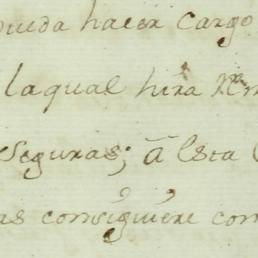 pueda hacer cargo
laqual hira Rem
seguras; â esta
as consiguiere com